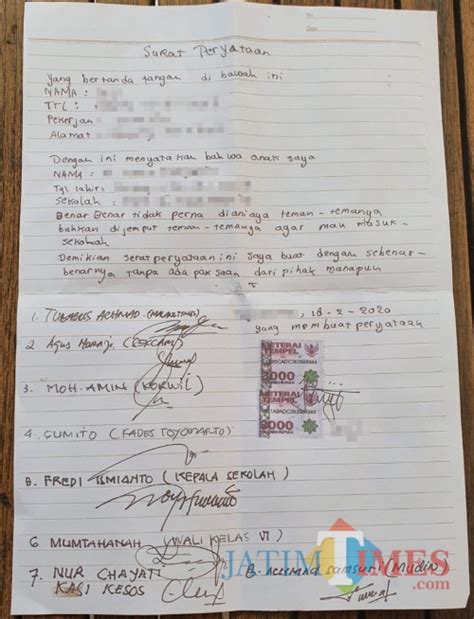 Surat Peryataan
yang bertanda tangan di bawah ini
NAMA :
TTL :
Pekerjan
Alamat
Dengan ini menyatakan bahwa anak saya
NAMA :
Tgl lahir:
Sekolah
Benar Benar tidak perna dianiaya teman-temanya
bahkan dijemput teman-temanya agar mau masuk-
sekolah
Demikian surat peryataan ini saya buat dengan sebenar-
benarnya tanpa ada paksaan dari pihak manapun
, 18-2-2020
yang membuat peryataan
1. TUBAGUS ACHMAD
2 Agus
3. MOH. AMIN (KORWIL)
4. SUMITO (KADES TOYOMARTO)
5. FREDI ISMIANTO (KEPALA SEKOLAH)
6 MUMTAHANAH (WALI KELAS VI)
7. NUR CHAYATI
KASI KESOS
8. ACHMAD SAMSURI (Mudin)
METERAI
TEMPEL
3000
METERAI
TEMPEL
3000
JATIMTIMES
.com